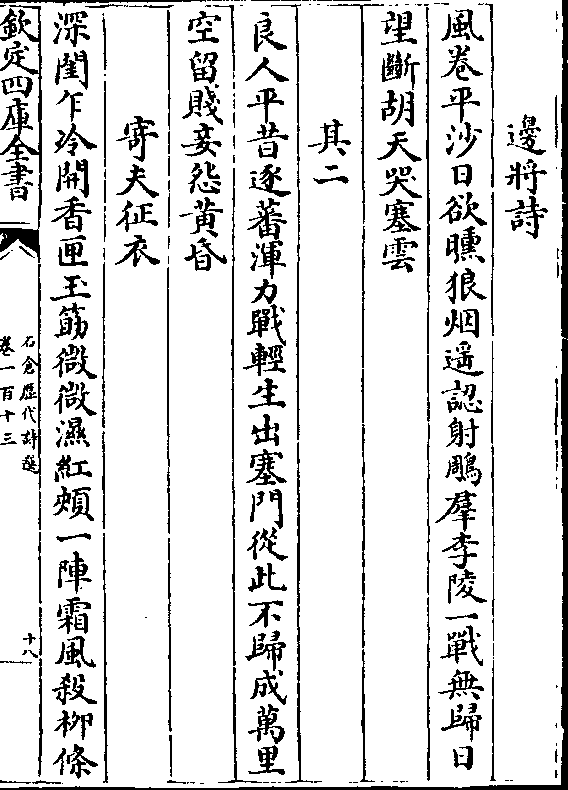 邊將詩
風卷平沙日欲曛狼烟遥認射鵰羣李陵一戰無歸日
望斷胡天哭塞雲
其二
良人平昔逐蕃渾力戰輕生出塞門從此不歸成萬里
空留賤妾怨黄昏
寄夫征衣
深閨乍冷開香匣玉筯微微濕紅頰一陣霜風殺柳條
欽定四庫全書
石倉歷代詩選
卷一百十三
十八